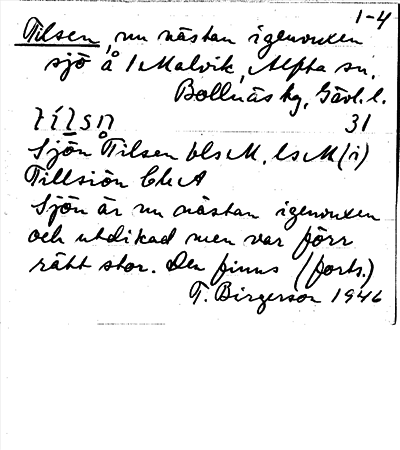 1-4
Tilsen, nu nästan igenvuxen
sjö å Malvik, Alfta sn,
Bollnäs kg, Gävl. l.
31
Sjön Tilsen bls M, ls M (i)
Tillsiön Ch A
Sjön är nu nästan igenvuxen
och utdikad men var förr
rätt stor. Den finns (forts.)
T. Birgerson 1946